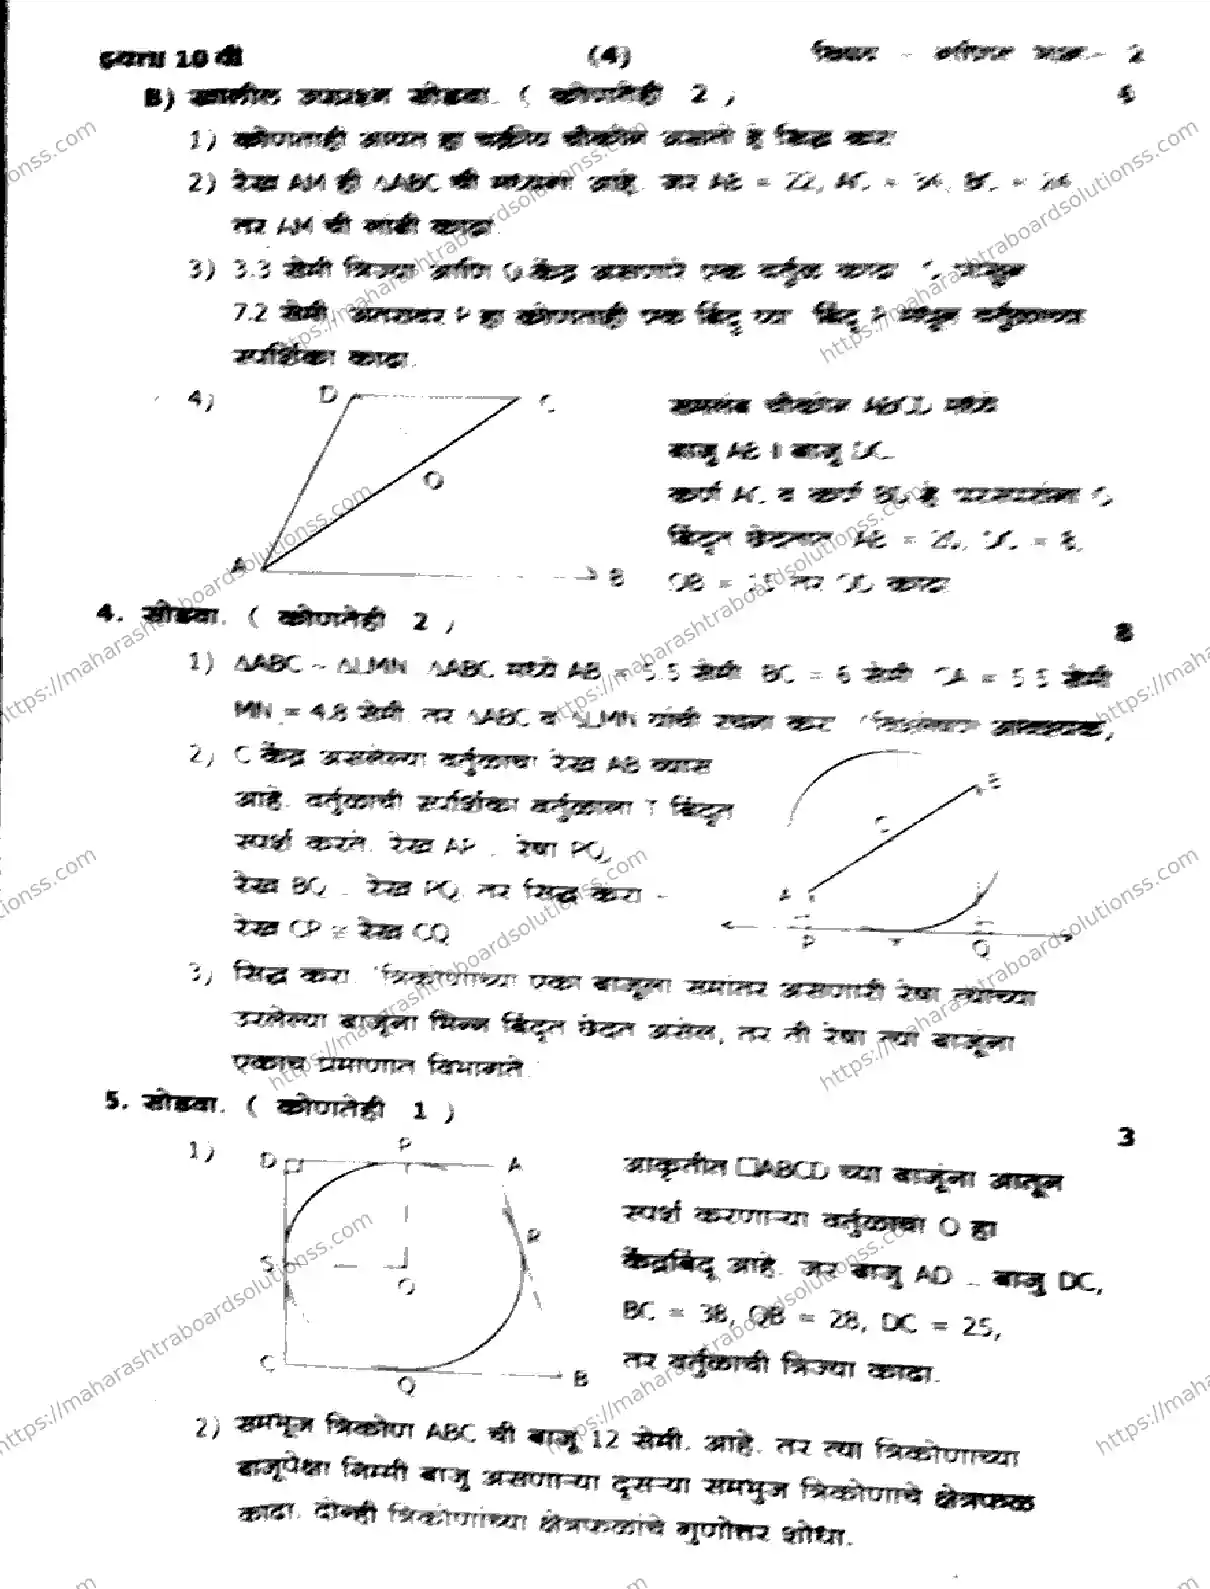 इयत्ता 10 वी (4) विषय - गणित भाग - 2
B) खालील उपप्रश्न सोडवा. ( कोणतेही 2 )
1) कोणताही आयत हा चक्रीय चौकोन असतो हे सिद्ध करा
2) रेख AM ही △ABC ची मध्यगा आहे. जर AB = 22, AC = 34, BC = 24
तर AM ची लांबी काढा.
3) 3.3 सेमी त्रिज्या आणि केंद्र असणारे एक वर्तुळ काढा पासून
7.2 सेमी. अंतरावर P हा कोणताही एक बिंदू घ्या बिंदू P मधून वर्तुळाच्या
स्पर्शिका काढा.
4) D C O A B
समलंब चौकोन ABCD मध्ये
बाजू AB ॥ बाजू DC.
कर्ण AC व कर्ण BD हे परस्परांना O
बिंदूत छेदतात AB = 20, = 6,
OB = 15 तर OD काढा
4. सोडवा. ( कोणतेही 2 ) 8
1) △ABC ~ △LMN △ABC मध्ये AB = 5.5 सेमी BC = 6 सेमी CA = सेमी
MN = 4.8 सेमी. तर △ABC व △LMN यांची रचना करा
2) C केंद्र असलेल्या वर्तुळाचा रेख AB व्यास
आहे. वर्तुळाची स्पर्शिका वर्तुळाला T बिंदूत
स्पर्श करते. रेख AP रेषा PQ,
रेख BQ रेख PQ. तर सिद्ध करा -
रेख CP ≅ रेख CQ
B C A P T Q
3) सिद्ध करा. 'त्रिकोणाच्या एका बाजूला समांतर असणारी रेषा त्याच्या
उरलेल्या बाजूंना भिन्न बिंदूत छेदत असेल, तर ती रेषा त्या बाजूंना
एकाच प्रमाणात विभागते.'
5. सोडवा. ( कोणतेही 1 ) 3
1) D P A R S O C Q B
आकृतीत □ABCD च्या बाजूंना आतून
स्पर्श करणाऱ्या वर्तुळाचा O हा
केंद्रबिंदू आहे. जर बाजू AD बाजू DC,
BC = 38, QB = 28, DC = 25,
तर वर्तुळाची त्रिज्या काढा.
2) समभूज त्रिकोण ABC ची बाजू 12 सेमी. आहे. तर त्या त्रिकोणाच्या
बाजूपेक्षा निम्मी बाजू असणाऱ्या दुसऱ्या समभुज त्रिकोणाचे क्षेत्रफळ
काढा. दोन्ही त्रिकोणांच्या क्षेत्रफळांचे गुणोत्तर शोधा.
https://maharashtraboardsolutionss.com